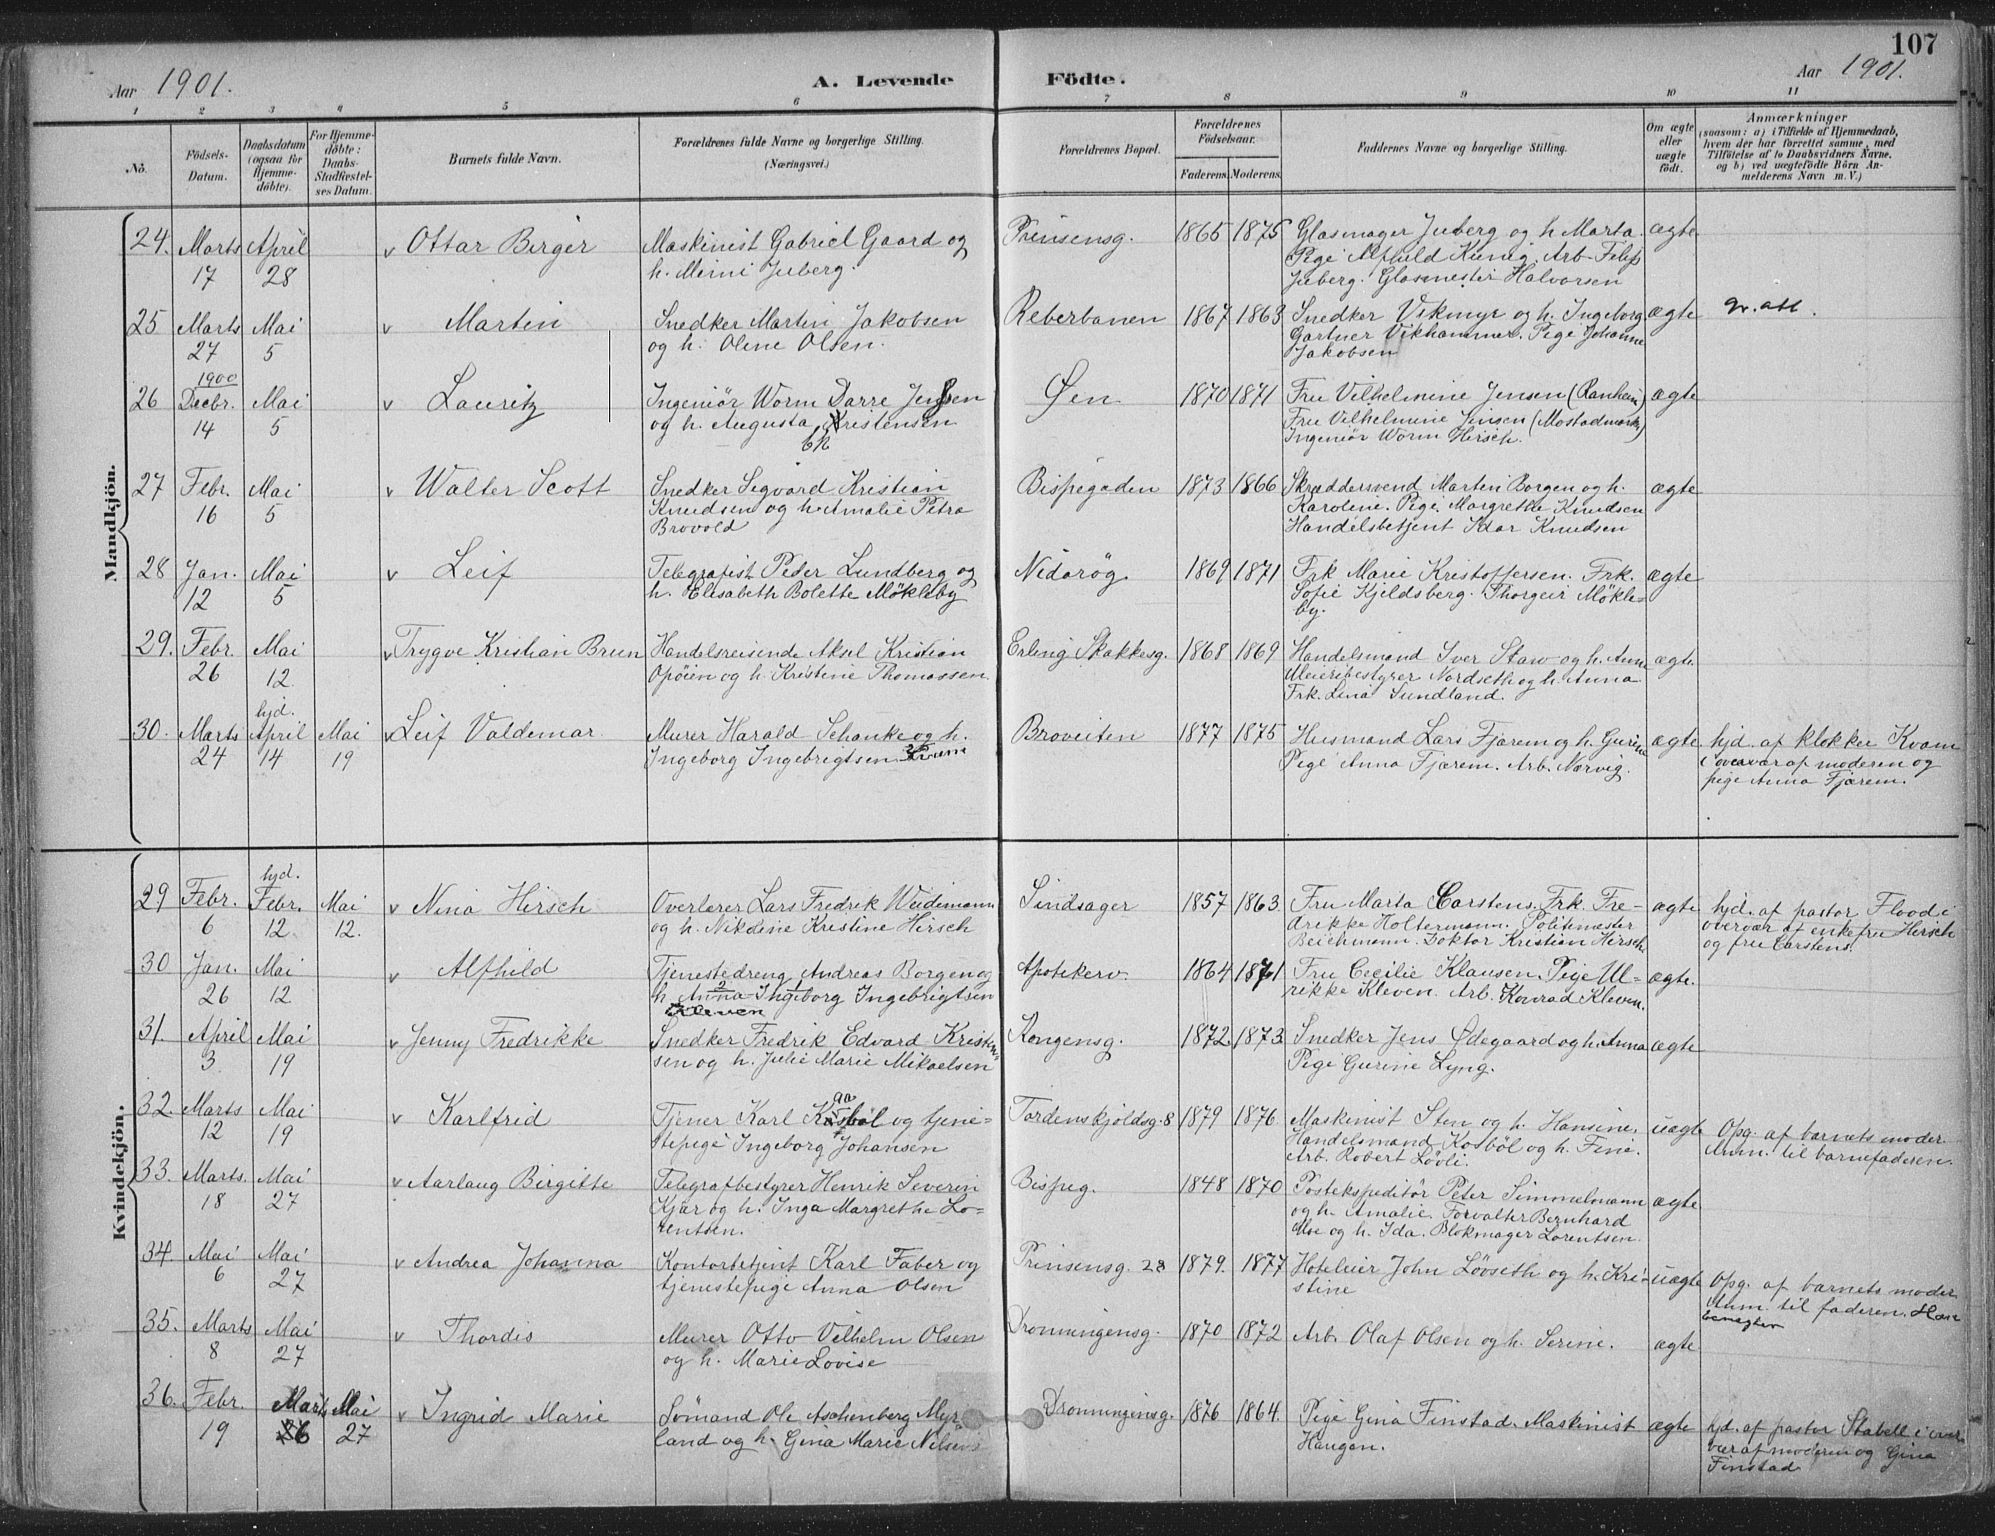 107
Aar 1901.
A. Levende Födte.
Aar 1901.
1 2 3 4 5 6 7 8 9 10 11
No.
Födsels-Datum.
Daabsdatum (ogsaa for Hjemme-döbte).
For Hjemme-döbte: Daabs-Stadfæstel-ses Datum.
Barnets fulde Navn.
Forældrenes fulde Navne og borgerlige Stilling. (Næringsvei.)
Forældrenes Bopæl.
Forældrenes Födselsaar.
Faderens. Moderens.
Faddernes Navne og borgerlige Stilling.
Om ægte eller uægte födt.
Anmærkninger
(saasom: a) i Tilfælde af Hjemmedaab, hvem der har forrettet samme, med Tilföielse af to Daabsvidners Navne, og b) ved uægtefödte Börn Anmelderens Navn m. V.)
Mandkjön.
24. Marts 17 April 28 v Ottar Birger
Maskinist Gabriel Gaard og
h. Mimi Juberg.
Prinsensg. 1865 1875
Glasmager Juberg og h. Marta.
Pige Alfhild Kunig. Arb. Filip
Juberg. Glasmester Halvorsen
ægte
25 Marts 27 Mai 5 v Martin
Snedker Martin Jakobsen
og h. Oline Olsen.
Reberbanen 1867 1863
Snedker Vikmyr og h. Ingeborg
Gartner Vikhammer. Pige Johanne
Jakobsen
ægte
att.
26 1900 Decbr. 14 Mai 5 v Lauritz
Ingeniör Worm Darre Jenssen
og h. Augusta Kristensen
Ch
Øen 1870 1871
Fru Vilhelmine Jensen (Ranheim)
Fru Vilhelmine Jensen (Mostadmark)
Ingeniör Worm Hirsch.
ægte
27 Febr. 16 Mai 5 v Walter Scott
Snedker Sigvard Kristian
Knudsen og h. Amalie Petra
Brovold
Bispegaden 1873 1866
Skræddersvend Martin Borgen og h.
Karoline. Pige Margrethe Knudsen
Handelsbetjent Idar Knudsen
ægte
28 Jan. 12 Mai 5 v Leif
Telegrafist Peder Lundberg og
h. Elisabeth Bolette Mökleby
Nidarög. 1869 1871
Frk Marie Kristoffersen. Frk.
Sofie Kjeldsberg. Thorgeir Mökle-
by.
ægte
29. Febr. 26 Mai 12 v Trygve Kristian Brun
Handelsreisende Aksel Kristian
Opöien og h. Kristine Thomassen.
Erling Skakkesg. 1868 1869
Handelsmand Iver Staw og h. Anne
Meieribestyrer Nordseth og h. Anna.
Frk. Lina Sundland.
ægte
30. Marts 24 hjd. April 14 Mai 19 v Leif Valdemar
Murer Harald Schanke og h.
Ingeborg Ingebrigtsen
Broveiten 1877 1875
Husmand Lars Fjærem og h. Gurine
Pige Anna Fjærem. Arb. Norvig.
ægte
hjd. af klokker Kvam
i overvær af moderen og
pige Anna Fjærem.
Kvindekjön.
29 Febr. 6 hjd. Febr. 12 Mai 12. v Nina Hirsch
Overlærer Lars Fredrik Weidemann
og h. Nikoline Kristine Hirsch
Sindsager 1857 1863
Fru Marta Carstens. Frk. Fre-
drikke Holtermann. Politimester
Beichmann. Doktor Kristian Hirsch
ægte
hjd. af pastor Flood i
overvær af enkefru Hirsch
og fru Carstens.
30 Jan. 26 Mai 12 v Alfhild
Tjenestedreng Andreas Borgen og
h. Anna Ingeborg Ingebrigtsen
Kleven
Apotekerv. 1864 1871
Fru Cecilie Klausen. Pige Ul-
rikke Kleven. Arb. Konrad Kleven.
ægte.
31. April 3 Mai 19 v Jenny Fredrikke
Snedker Fredrik Edvard Kristen
sen og h. Julie Marie Mikaelsen
Kongensg. 1872. 1873
Snedker Jens Ødegaard og h. Anna
Pige Gurine Lyng.
ægte
32. Marts 12 Mai 19 v Karlfrid
Tjener Karl Kasböl og tjene-
stepige Ingeborg Johansen
Tordenskjoldsg. 8 1879 1876.
Maskinist Sten og h. Hansine.
Handelsmand Kosböl og h. Fine.
Arb. Robert Lövli.
uægte
Opg. af barnets moder
Anm. til barnefaderen.
33. Marts. 18 Mai 27 v Aarlaug Birgitte
Telegrafbestyrer Henrik Severin
Kjær og h. Inga Margrethe Lo-
rentsen.
Bispeg. 1848 1870
Postekspeditör Peter Simmelmann
og h. Amalie. Forvalter Bernhard
Moe og h. Ida. Blokmager Lorentsen.
ægte
34. Mai 6 Mai 27 v Andrea Johanna
Kontorbetjent Karl Faber og
tjenestepige Anna Olsen
Prinsensg. 28 1879. 1877
Hoteleier John Lövseth og h. Kri-
stine
uægte
Opg. af barnets moder
Anm. til faderen. Han
benegter
35. Marts 8 Mai 27 v Thordis
Murer Otto Vilhelm Olsen
og h. Marie Lovise
Dronningensg. 1870 1872
Arb. Olaf Olsen og h. Serine.
ægte
36. Febr. 19 Marts 26 Mai 27 v Ingrid Marie
Sömand Ole Aschenberg Myr-
land og h. Gina Marie Nilsen
Dronningensg. 1876 1864.
Pige Gina Finstad. Maskinist
Haugan.
ægte
hjd. af pastor Stabell i over
vær af moderen og Gina
Finstad